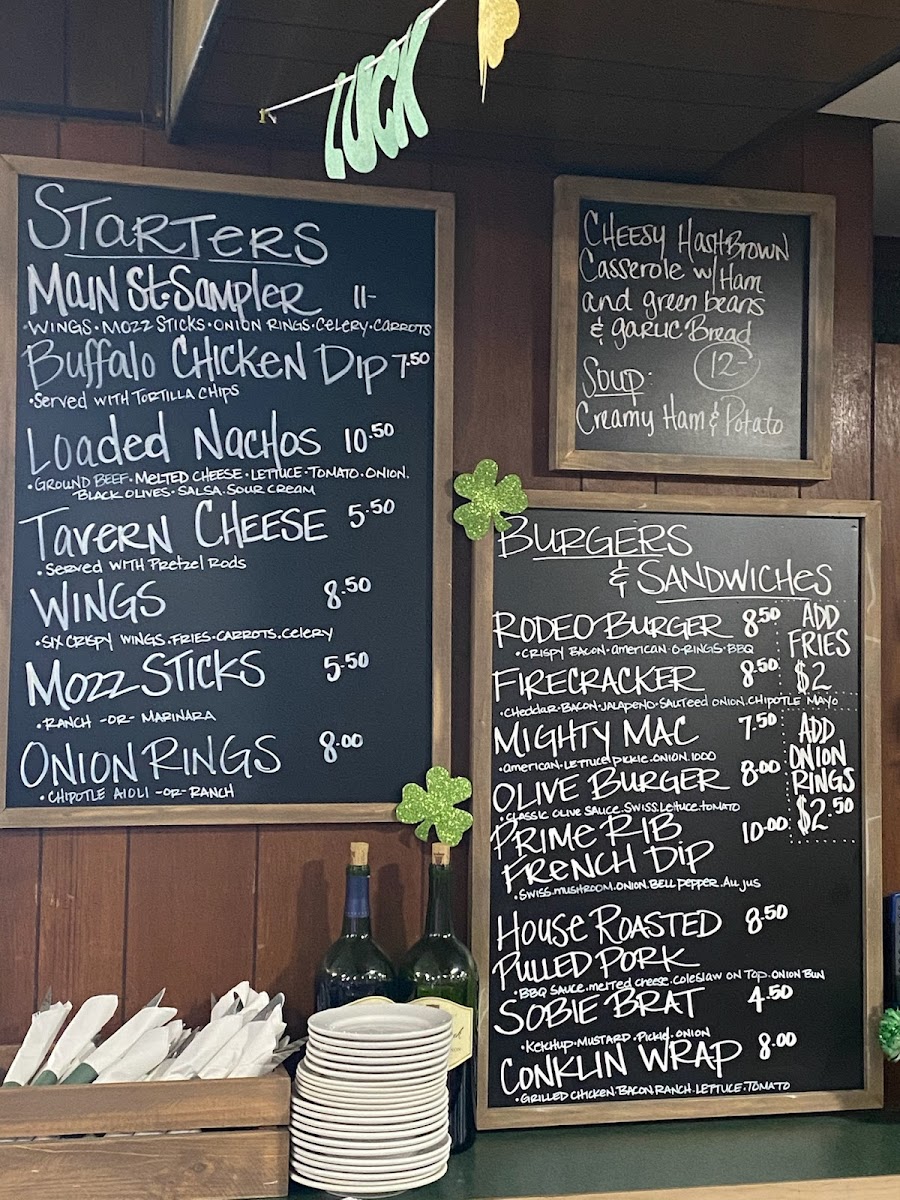 LUCK
STARTERS
MAIN St. SAMPLER 11-
•WINGS•MOZZ STICKS•ONION RINGS•CELERY•CARROTS
Buffalo CHICKEN Dip 7.50
•Served WITH TORTILLA CHIPS
Loaded Nachos 10.50
•GROUND BEEF•MELTED CHEESE•LETTUCE•TOMATO•ONION.
BLACK OLIVES•SALSA.SOUR CREAM
TAVERN CHEESE 5.50
•Served WITH Pretzel Rods
WINGS 8.50
•SIX CRISPY WINGS.FRIES•CARROTS.CELERY
MOZZ STICKS 5.50
•RANCH -OR- MARINARA
ONION RINGS 8.00
•CHIPOTLE AIOLI -OR- RANCH
CHEESY HASHBROWN
Casserole w/ Ham
and green beans
& GARLIC Bread
12-
Soup:
Creamy Ham & Potato
BURGERS
& SANDWICHES
RODEO BURGER 8.50
•CRISPY BACON•AMERICAN•O-RINGS•BBQ
FIRECRACKER 8.50
•CHEDDAR•BACON•JALAPENO•SAUTEED ONION.CHIPOTLE MAYO
MIGHTY MAC 7.50
•AMERICAN•LETTUCE.PICKLE.ONION.1000
OLIVE BURGER 8.00
•CLASSIC OLIVE SAUCE.SWISS.LETTUCE.TOMATO
PRIME RIB
FRENCH DIP 10.00
•SWISS.MUSHROOM.ONION.BELL PEPPER.AU JUS
HOUSE ROASTED 8.50
PULLED PORK
•BBQ SAUCE.MELTED CHEESE.COLESLAW ON TOP.ONION BUN
SOBIE BRAT 4.50
•KETCHUP•MUSTARD•PICKLE.ONION
CONKLIN WRAP 8.00
•GRILLED CHICKEN.BACON.RANCH.LETTUCE.TOMATO
ADD
FRIES
$2
ADD
ONION
RINGS
$2.50